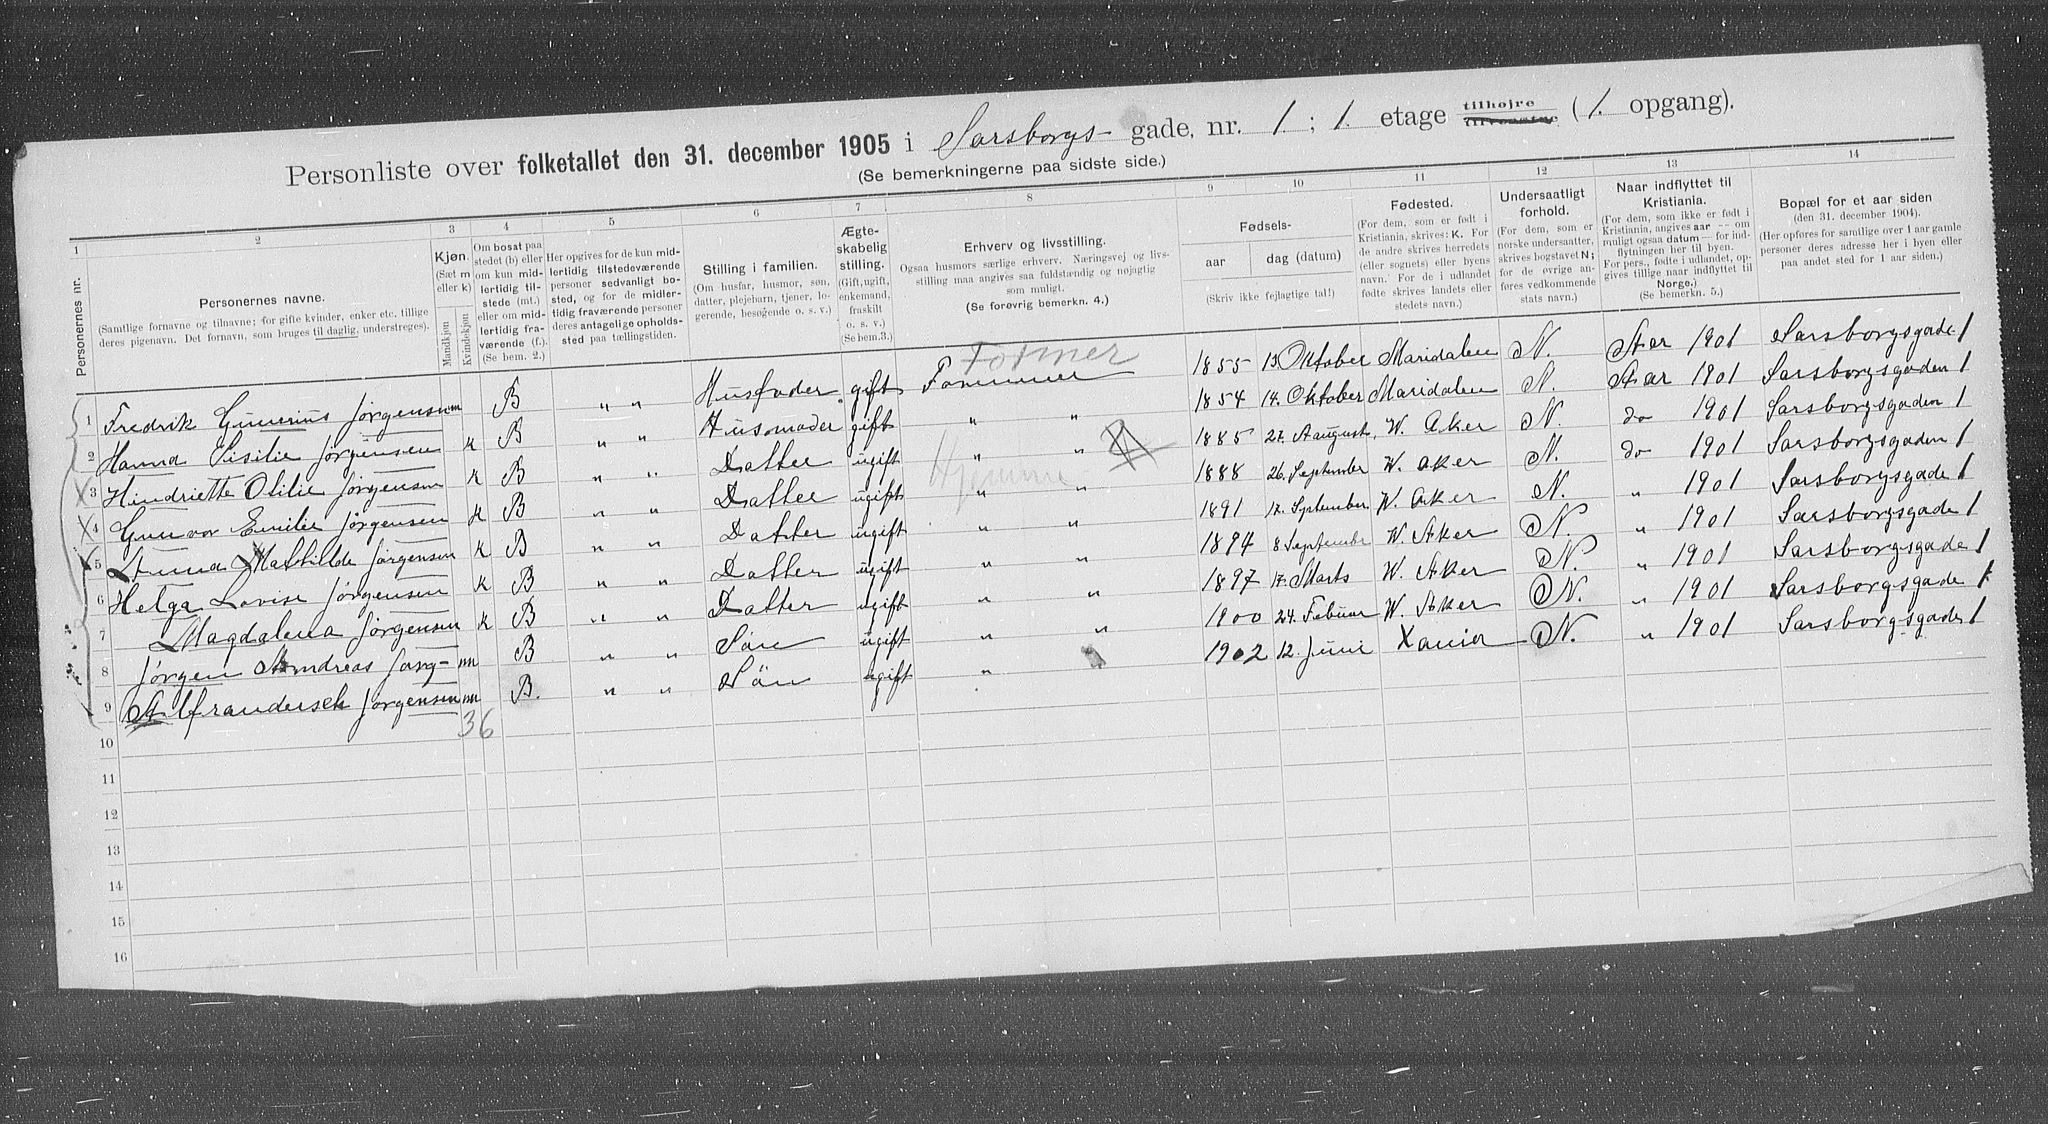 Personliste over folketallet den 31. december 1905 i Sarsborgs- gade, nr. 1. ; 1. etage tilhøjre tilvenstre (1. opgang).
(Se bemerkningerne paa sidste side.)
1 2 3 4 5 6 7 8 9 10 11 12 13 14
Personernes nr.
Personernes navne.
(Samtlige fornavne og tilnavne; for gifte kvinder, enker etc. tillige
deres pigenavn. Det fornavn, som bruges til daglig, understreges).
Kjøn.
(Sæt m
eller k)
Mandkjøn
Kvindekjøn
Om bosat paa
stedet (b) eller
om kun mid-
lertidig til-
stede (mt.)
eller om mid-
lertidig fra-
værende (f.).
(Se bem. 2.)
Her opgives for de kun mid-
lertidig tilstedeværende
personer sedvanligt bo-
sted, og for de midler-
tidig fraværende personer
deres antagelige opholds-
sted paa tællingstiden.
Stilling i familien.
(Om husfar, husmor, søn,
datter, plejebarn, tjener, lo-
gerende, besøgende o. s. v.)
Ægte-
skabelig
stilling.
(Gift, ugift,
enkemand,
fraskilt
o. s. v.)
(Se bem. 3.)
Erhverv og livsstilling.
Ogsaa husmors særlige erhverv. Næringsvej og livs-
stilling maa angives saa fuldstændig og nøjagtig
som muligt.
(Se forøvrig bemerkn. 4.)
Fødsels-
aar dag (datum)
(Skriv ikke fejlagtige tal!)
Fødested.
(For dem, som er født i
Kristiania, skrives: K. For
de andre skrives herredets
(eller sognets) eller byens
navn. For de i udlandet
fødte skrives landets eller
stedets navn.)
Undersaatligt
forhold.
(For dem, som er
norske undersaatter,
skrives bogstavet N;
for de øvrige an-
føres vedkommende
stats navn.)
Naar indflyttet til
Kristiania.
(For dem, som ikke er født i
Kristiania, angives aar — om
muligt ogsaa datum — for ind-
flytningen her til byen.
For pers., fødte i udlandet, op-
gives tillige naar indflyttet til
Norge.)
(Se bemerkn. 5.)
Bopæl for et aar siden
(den 31. december 1904).
(Her opføres for samtlige over 1 aar gamle
personer deres adresse her i byen eller
paa andet sted for 1 aar siden.)
Former
1 Fredrik Gunerius Jørgensen m B " " Husfader gift 1855 13. Oktober Maridalen N. Aar 1901 Sarsborgsgade 1
2 Hanna Sisilie Jørgensen k B " " Husmoder gift " " 1854 14. Oktober Maridalen N. Aar 1901 Sarsborgsgaden 1
3 Hindriette Otilie Jørgensen k B " " Datter ugift " " 1885 27. Aaugust. W. Aker N. do 1901 Sarsborgsgaden 1
Hjemme
4 Gunvor Emilie Jørgensen k B " " Datter ugift " " 1888 26. September W. Aker N. do 1901 Sarsborgsgaden 1
5 Anna Mathilde Jørgensen k B " " Datter ugift " " 1891 17. September W. Aker N. " 1901 Sarsborgsgade 1
6 Helga Lovise Jørgensen k B " " Datter ugift " " 1894 8 September W. Aker N " 1901 Sarsborgsgade 1
7 Magdalena Jørgensen k B " " Datter ugift " " 1897 17. Marts W. Aker N. " 1901 Sarsborgsgade 1
8 Jørgen Andreas Jørg- m B " " Sön ugift " " 1900 24. Febuar W. Aker N. " 1901 Sarsborgsgade 1
9 Alfrandersek Jørgensen m B. " " Sön ugift " 1902 12. Juni N. " 1901 Sarsborgsgade 1
36
10
11
12
13
14
15
16